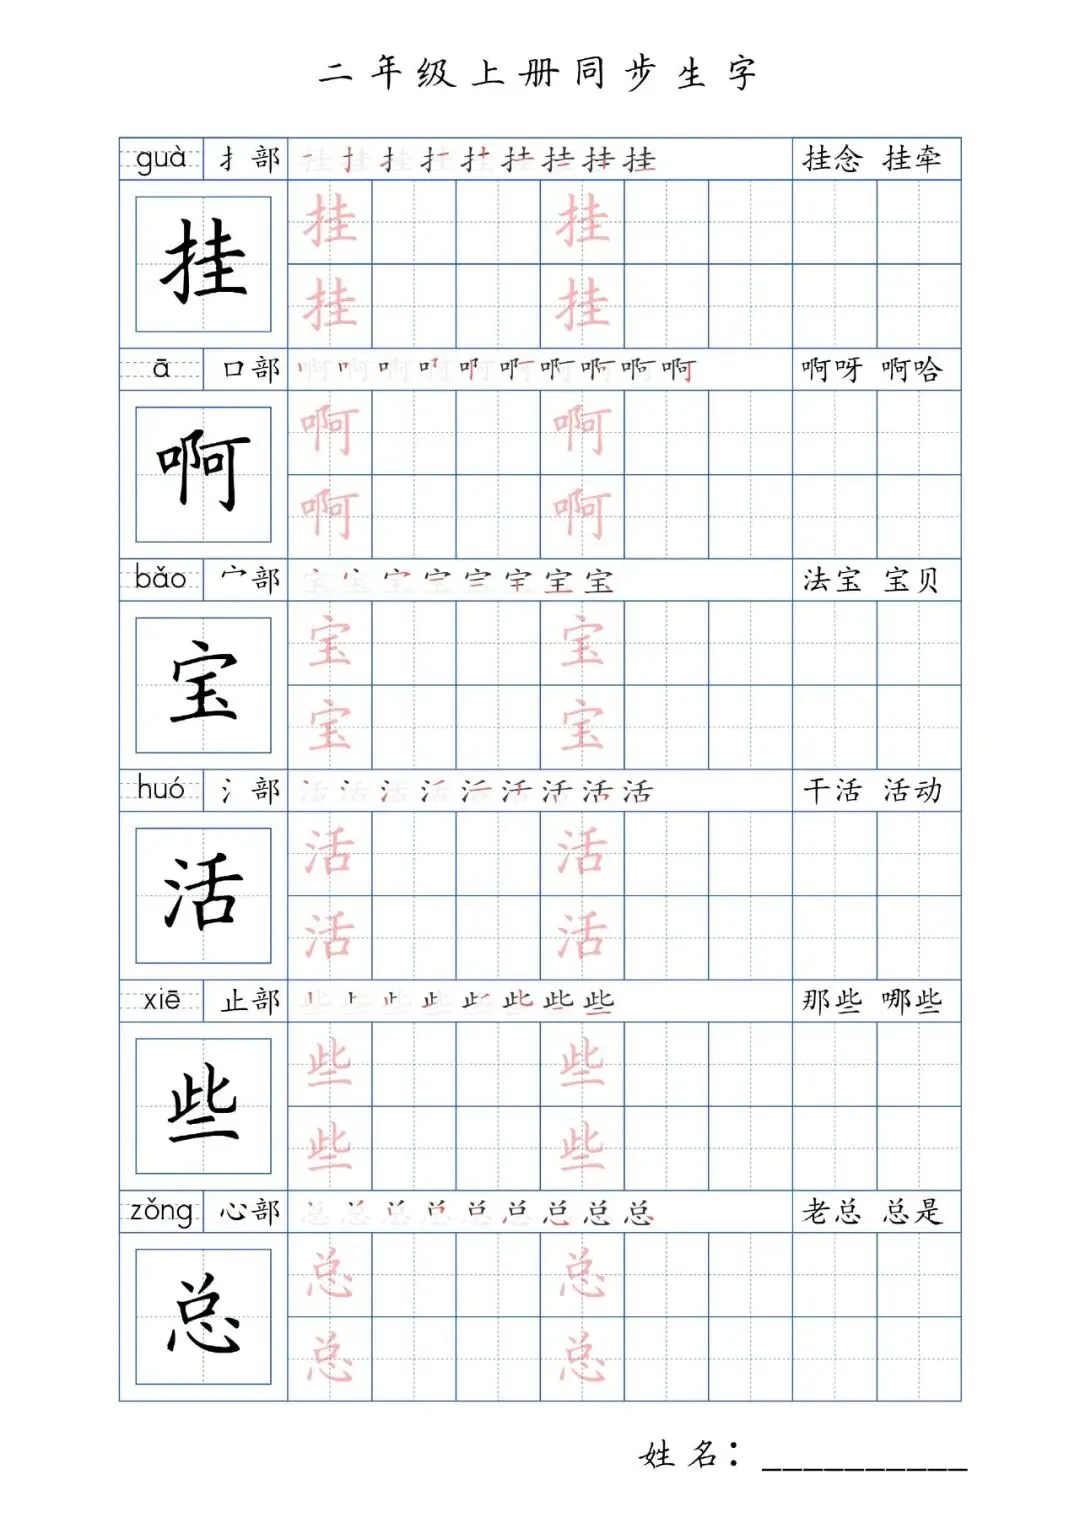 二年级上册同步生字
guà 扌部 挂挂挂挂挂挂挂挂挂 挂念 挂牵
挂 挂 挂
挂 挂
ā 口部 啊啊啊啊啊啊啊啊啊啊 啊呀 啊哈
啊 啊 啊
啊 啊
bǎo 宀部 宝宝宝宝宝宝宝宝 法宝 宝贝
宝 宝 宝
宝 宝
huó 氵部 活活活活活活活活活 干活 活动
活 活 活
活 活
xiē 止部 些些些些些些些些 那些 哪些
些 些 些
些 些
zǒng 心部 总总总总总总总总总 老总 总是
总 总 总
总 总
姓名：__________